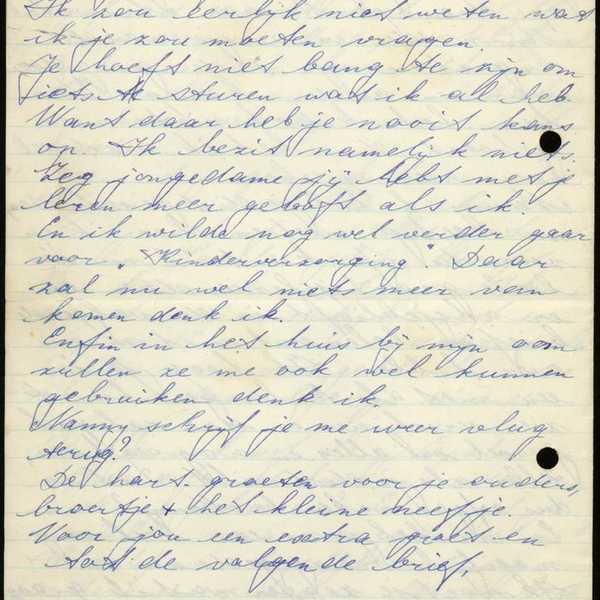 Ik zou eerlijk niet weten wat
ik je zou moeten vragen.
Je hoeft niet bang te zijn om
iets te sturen wat ik al heb.
Want daar heb je nooit kans
op. Ik bezit namelijk niets.
Zeg jongedame jij hebt met je
leren meer geboft als ik.
En ik wilde nog wel verder gaan
voor „Kinderverzorging". Daar
zal nu wel niets meer van
komen denk ik.
Enfin in het huis bij mijn oom
zullen ze me ook wel kunnen
gebruiken denk ik.
Nanny schrijf je me weer vlug
terug?
De hart. groeten voor je ouders,
broertje + het kleine neefje.
Voor jou een extra groet en
tot de volgende brief,